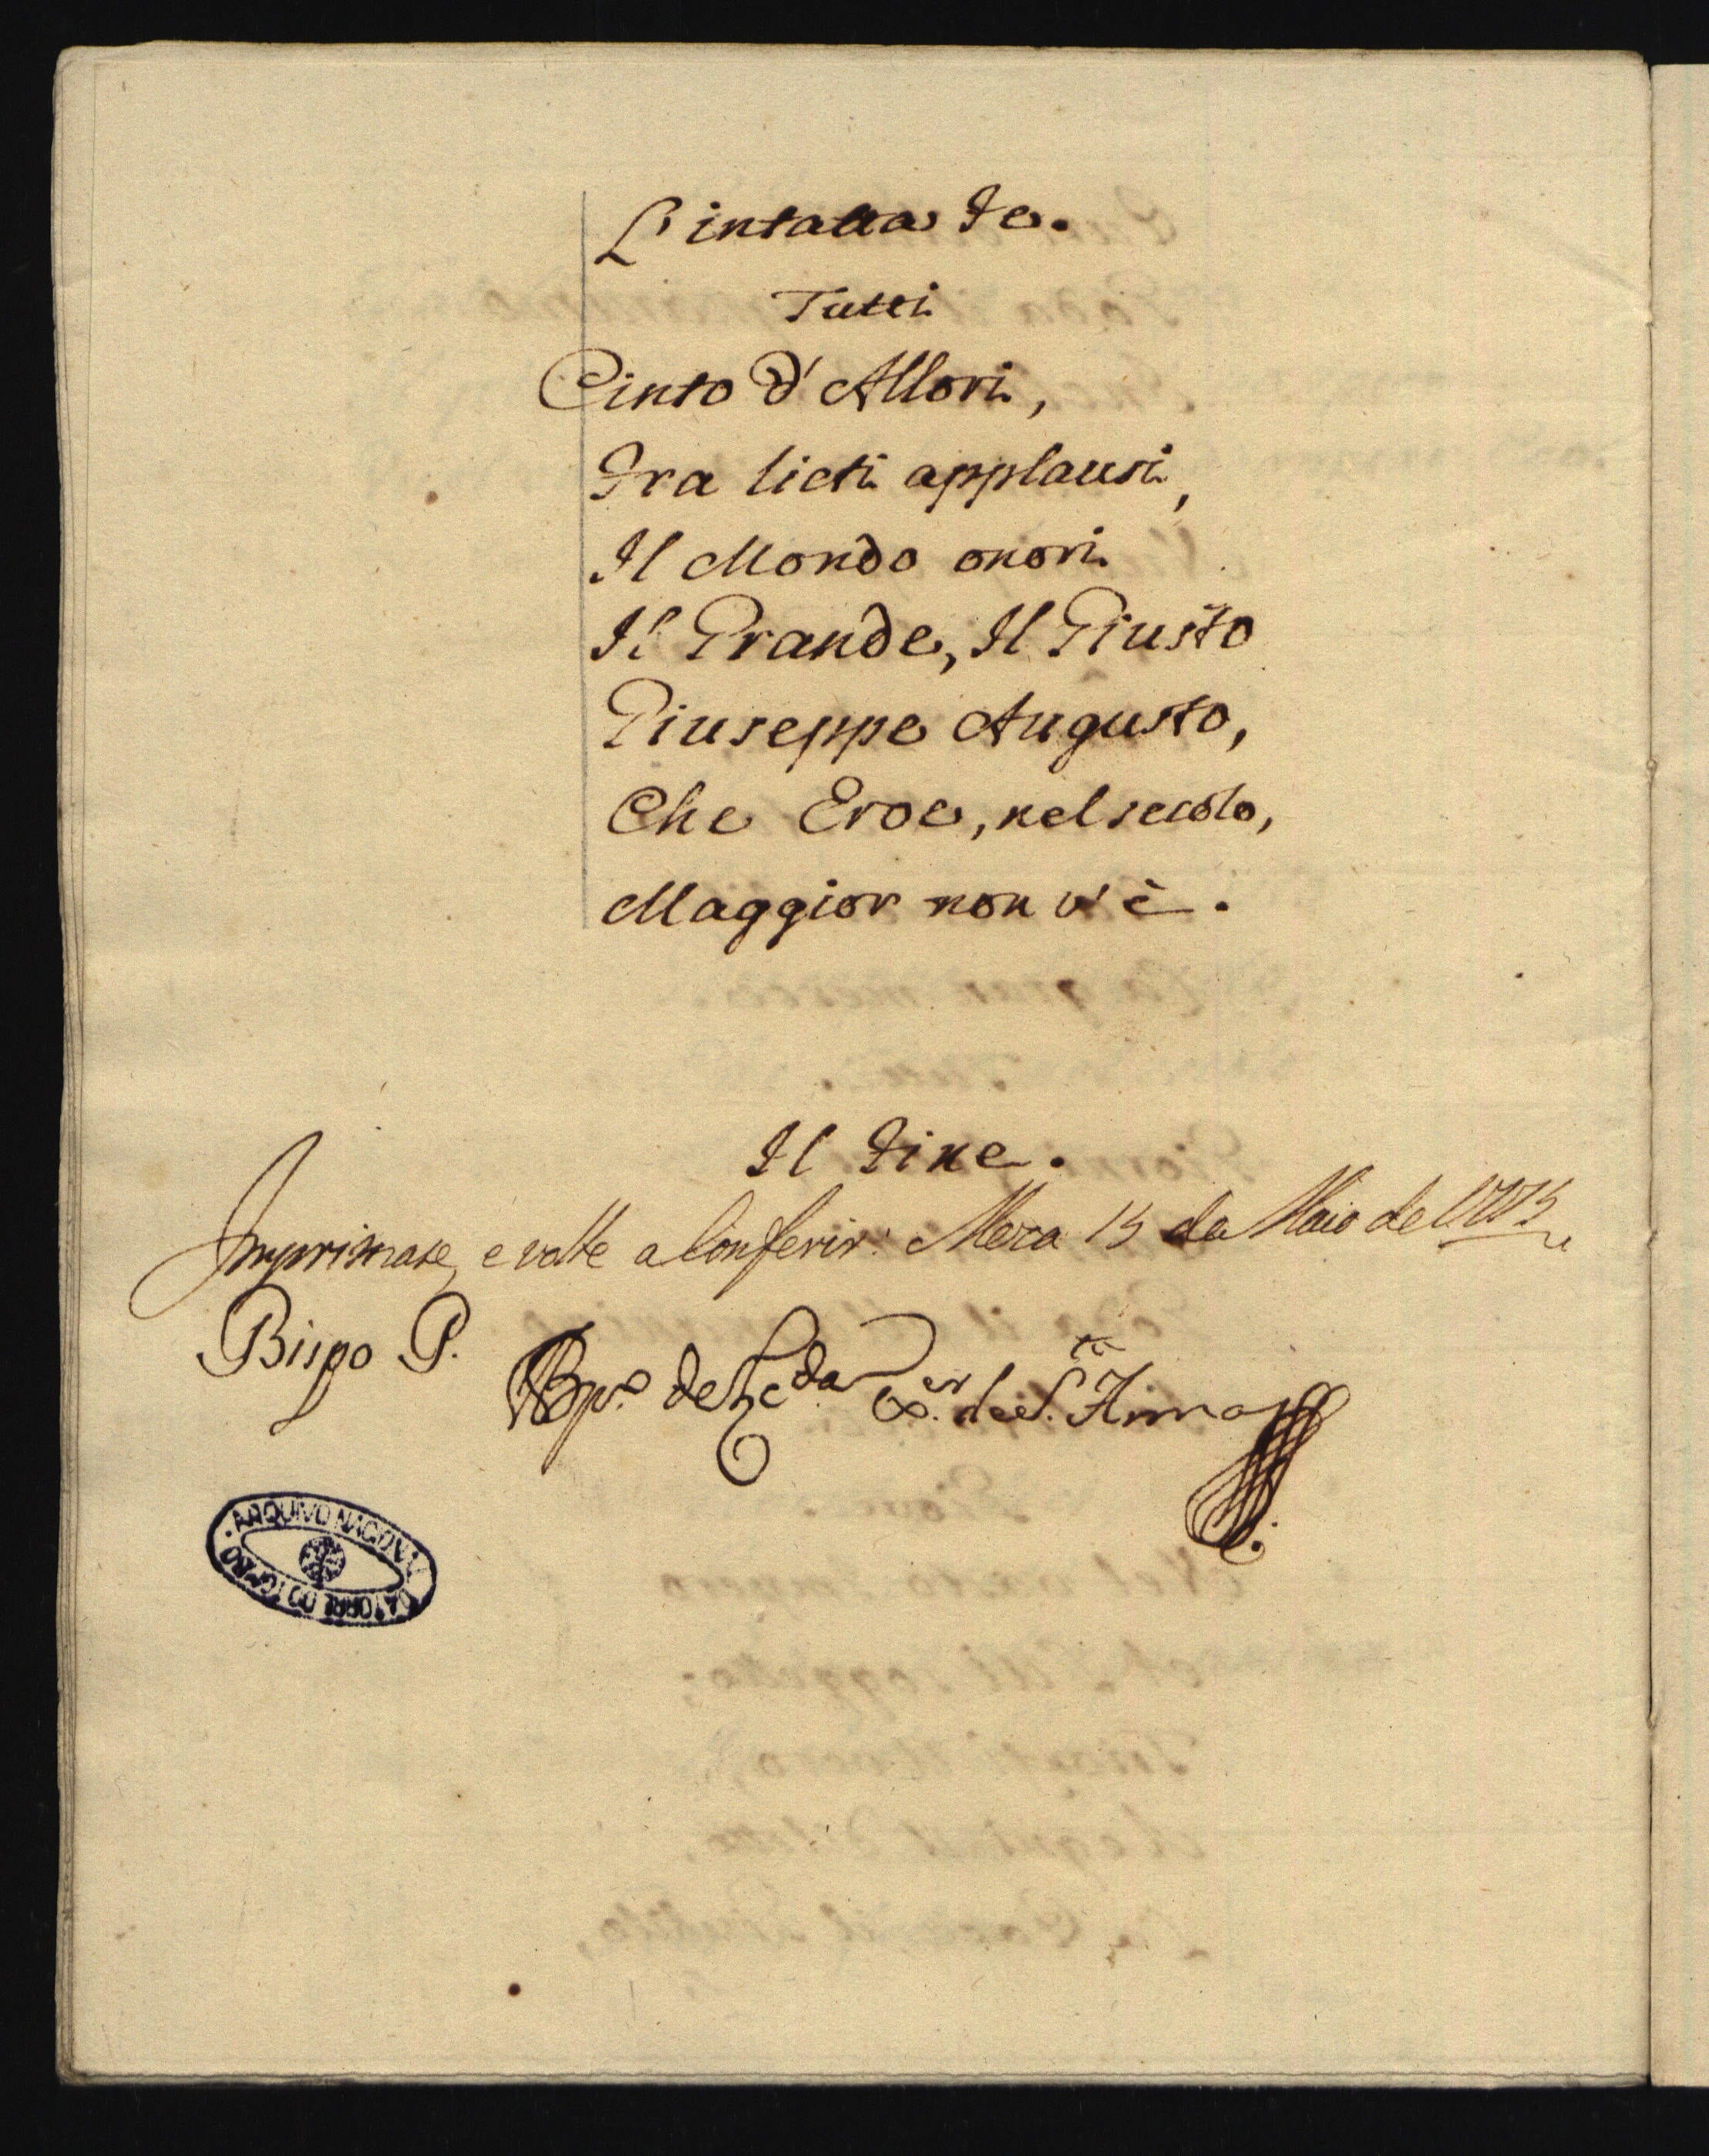 L'intatta Fe.
Tutti
Cinto d'Allori,
Fra lieti applausi,
Il Mondo onori
Il Grande, Il Giusto
Giuseppe Augusto,
Che Eroe, nel secolo,
Maggior non v'è.
Il Fine.
Imprimase, e volte a Conferir. Meza 15 de Maio de 1775
Bispo P.
ARQUIVO NACIONAL DA TORRE DO TOMBO